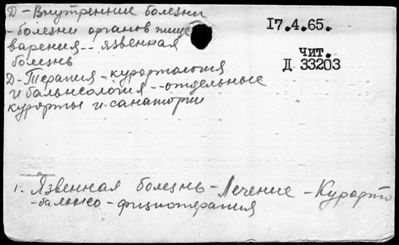 Д - Внутренние болезни
- болезни органов пище
варения - - язвенная
болезнь
Д - Терапия - курортология
и бальнеология - - отдельные
курорты и санатории
17.4.65.
чит.
Д 33203
1. Язвенная болезнь - Лечение - Курорто
- бальнео - физиотерапия